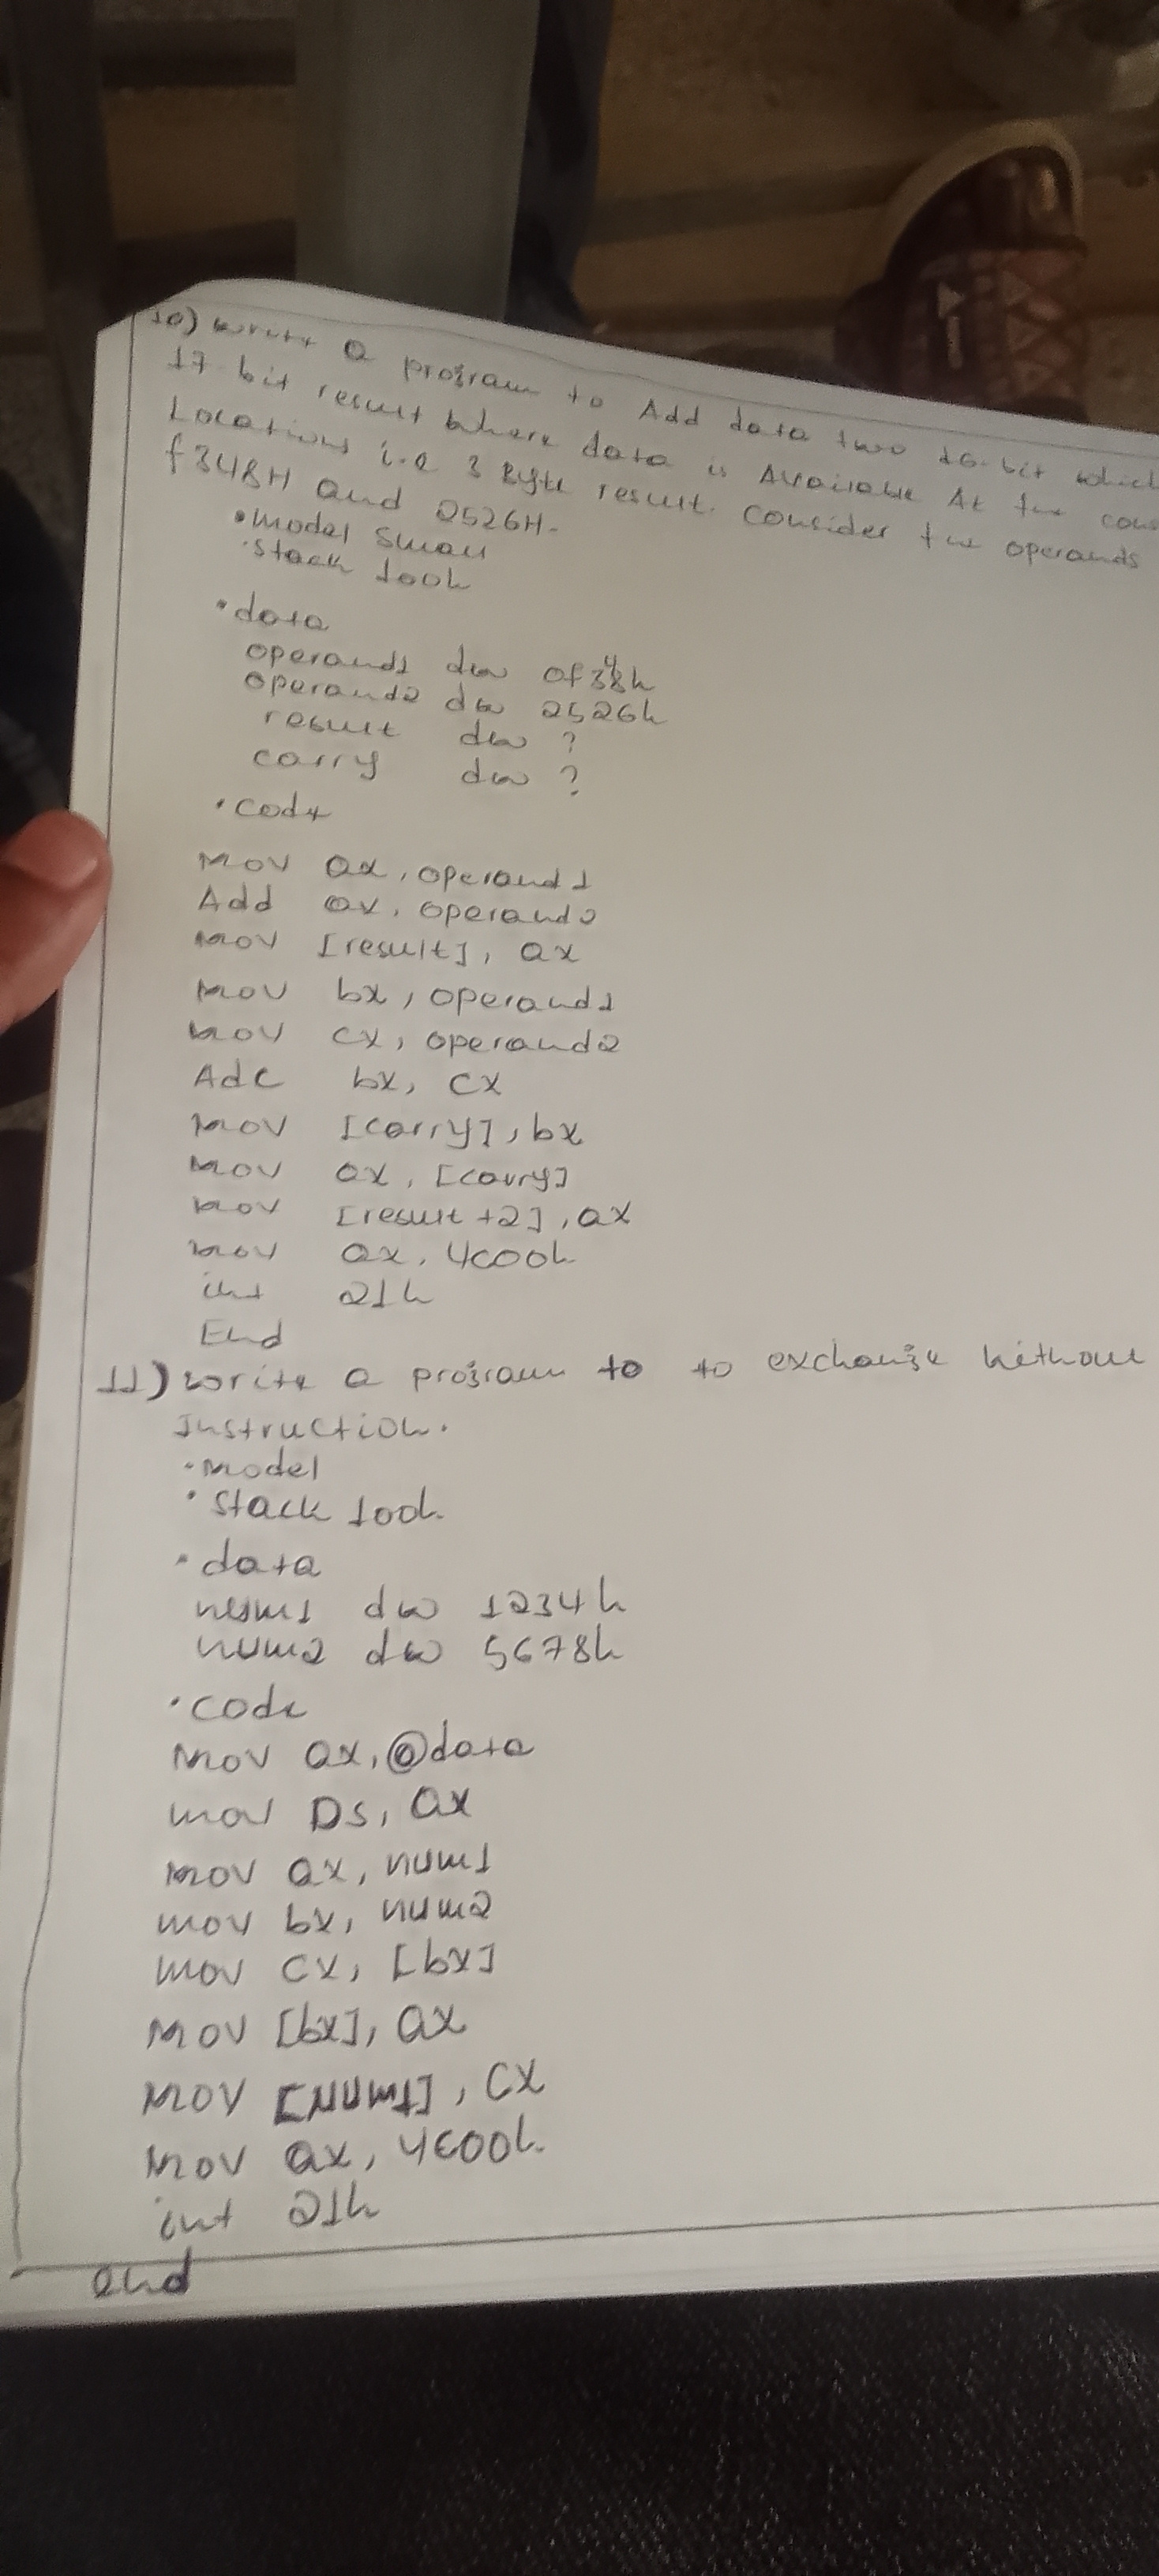 10) write a program to Add data two 16-bit which
17 bit result where data is Available At the
Locations i.e 3 Byte result. consider the operands
f348H and 2526H.
.model small
.stack 100h
.data
operand1 dw 0f348h
operand2 dw 2526h
result dw ?
carry dw ?
.code
Mov ax, operand1
Add ax, operand2
Mov [result], ax
Mov bx, operand1
Mov cx, operand2
Adc bx, cx
Mov [carry], bx
Mov ax, [carry]
Mov [result+2], ax
Mov ax, 4c00h
int 21h
End
11) write a program to to exchange without
Instruction.
.model
.stack 100h
.data
num1 dw 1234h
num2 dw 5678h
.code
Mov ax, @data
mov DS, ax
Mov ax, num1
mov bx, num2
mov cx, [bx]
Mov [bx], ax
Mov [Num1], cx
Mov ax, 4c00h
int 21h
end